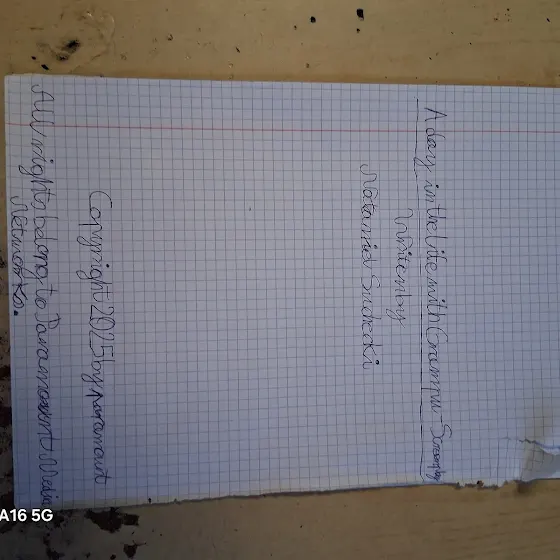 A day in the life with Grampu - Screenplay
Writen by
Nataniel Suchecki
Copyright 2025 by Paramount
All rights belong to Paramount Media
Networks.
A16 5G